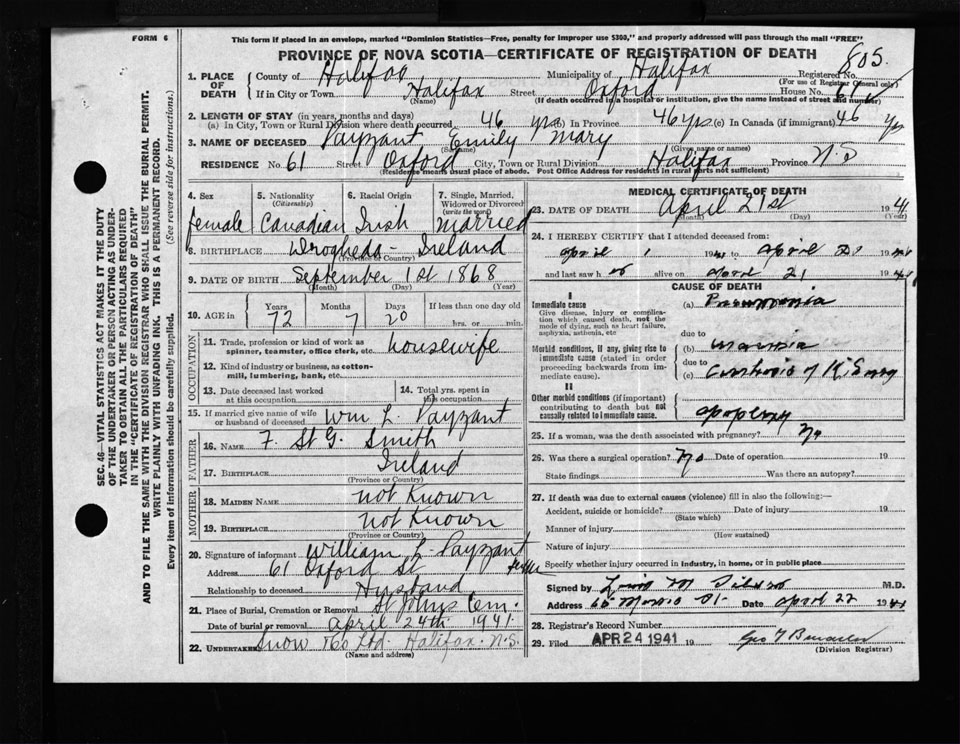 FORM 6
This form if placed in an envelope, marked "Dominion Statistics—Free, penalty for improper use $300," and properly addressed will pass through the mail "FREE"
PROVINCE OF NOVA SCOTIA—CERTIFICATE OF REGISTRATION OF DEATH
805.
1. PLACE OF DEATH
County of Halifax Municipality of Halifax Registered No.
(For use of Registrar General only)
If in City or Town Halifax Street Oxford House No. 61
(Name) (If death occurred in a hospital or institution, give the name instead of street and number)
2. LENGTH OF STAY (in years, months and days)
(a) In City, Town or Rural Division where death occurred 46 yrs (b) In Province 46 yrs (c) In Canada (if immigrant) 46 yrs
3. NAME OF DECEASED Payzant Emily Mary
(Surname) (Given name or names)
RESIDENCE No. 61 Street Oxford City, Town or Rural Division Halifax Province N.S
(Residence means usual place of abode. Post Office Address for residents in rural parts not sufficient)
4. Sex female
5. Nationality (Citizenship) Canadian
6. Racial Origin Irish
7. Single, Married, Widowed or Divorced (write the word) Married
8. BIRTHPLACE Drogheda - Ireland
(Province or Country)
9. DATE OF BIRTH September 1st 1868
(Month) (Day) (Year)
10. AGE in Years 72 Months 7 Days 20 If less than one day old hrs. or min.
OCCUPATION
11. Trade, profession or kind of work as spinner, teamster, office clerk, etc. housewife
12. Kind of industry or business, as cotton-mill, lumbering, bank, etc.
13. Date deceased last worked at this occupation
14. Total yrs. spent in this occupation
15. If married give name of wife or husband of deceased Wm L. Payzant
FATHER
16. Name F. St G. Smith
17. Birthplace Ireland
(Province or Country)
MOTHER
18. Maiden Name not Known
19. Birthplace not Known
(Province or Country)
20. Signature of informant William L. Payzant
Address 61 Oxford St
Relationship to deceased Husband
21. Place of Burial, Cremation or Removal St Johns Cem.
Date of burial or removal April 24th 1941
22. Undertaker Snow & Co Ltd. Halifax. N.S.
(Name and address)
MEDICAL CERTIFICATE OF DEATH
23. DATE OF DEATH April 21st 194
(Month) (Day) (Year)
24. I HEREBY CERTIFY that I attended deceased from:
April 1 1941 to April 21 1941
and last saw h alive on April 21 194
CAUSE OF DEATH
I
Immediate cause
Give disease, injury or complication which caused death, not the mode of dying, such as heart failure, asphyxia, asthenia, etc
(a) Pneumonia
due to
Morbid conditions, if any, giving rise to immediate cause (stated in order proceeding backwards from immediate cause).
(b)
due to
(c)
II
Other morbid conditions (if important) contributing to death but not causally related to immediate cause.
apoplexy
25. If a woman, was the death associated with pregnancy? No
26. Was there a surgical operation? No Date of operation 19
State findings Was there an autopsy?
27. If death was due to external causes (violence) fill in also the following:—
Accident, suicide or homicide? Date of injury 19
(State which)
Manner of injury
(How sustained)
Nature of injury
Specify whether injury occurred in industry, in home, or in public place
Signed by M.D.
Address 65 Morris St. Date April 22 1941
28. Registrar's Record Number
29. Filed APR 24 1941 19
(Division Registrar)
SEC. 46—VITAL STATISTICS ACT MAKES IT THE DUTY OF THE UNDERTAKER OR PERSON ACTING AS UNDERTAKER TO OBTAIN ALL THE PARTICULARS REQUIRED IN THE "CERTIFICATE OF REGISTRATION OF DEATH"
AND TO FILE THE SAME WITH THE DIVISION REGISTRAR WHO SHALL ISSUE THE BURIAL PERMIT.
WRITE PLAINLY WITH UNFADING INK. THIS IS A PERMANENT RECORD.
Every item of information should be carefully supplied. (See reverse side for instructions.)